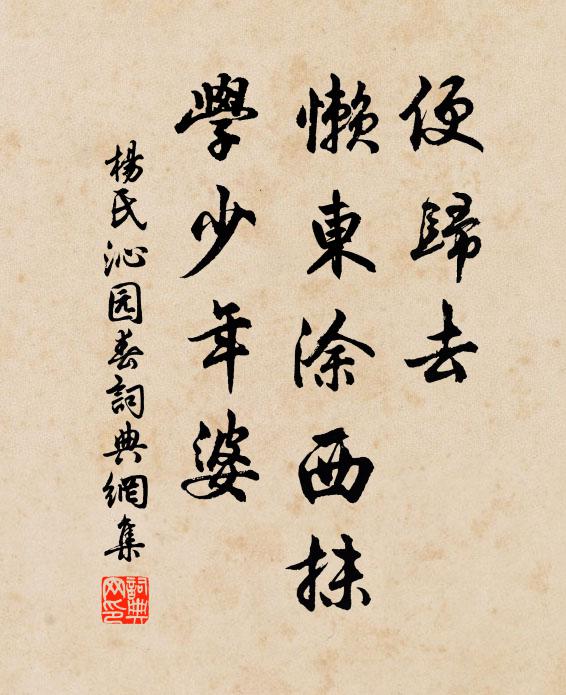 便歸去
懶東涂西抹
學少年婆
楊氏沁园春詞典網集
詞典網印